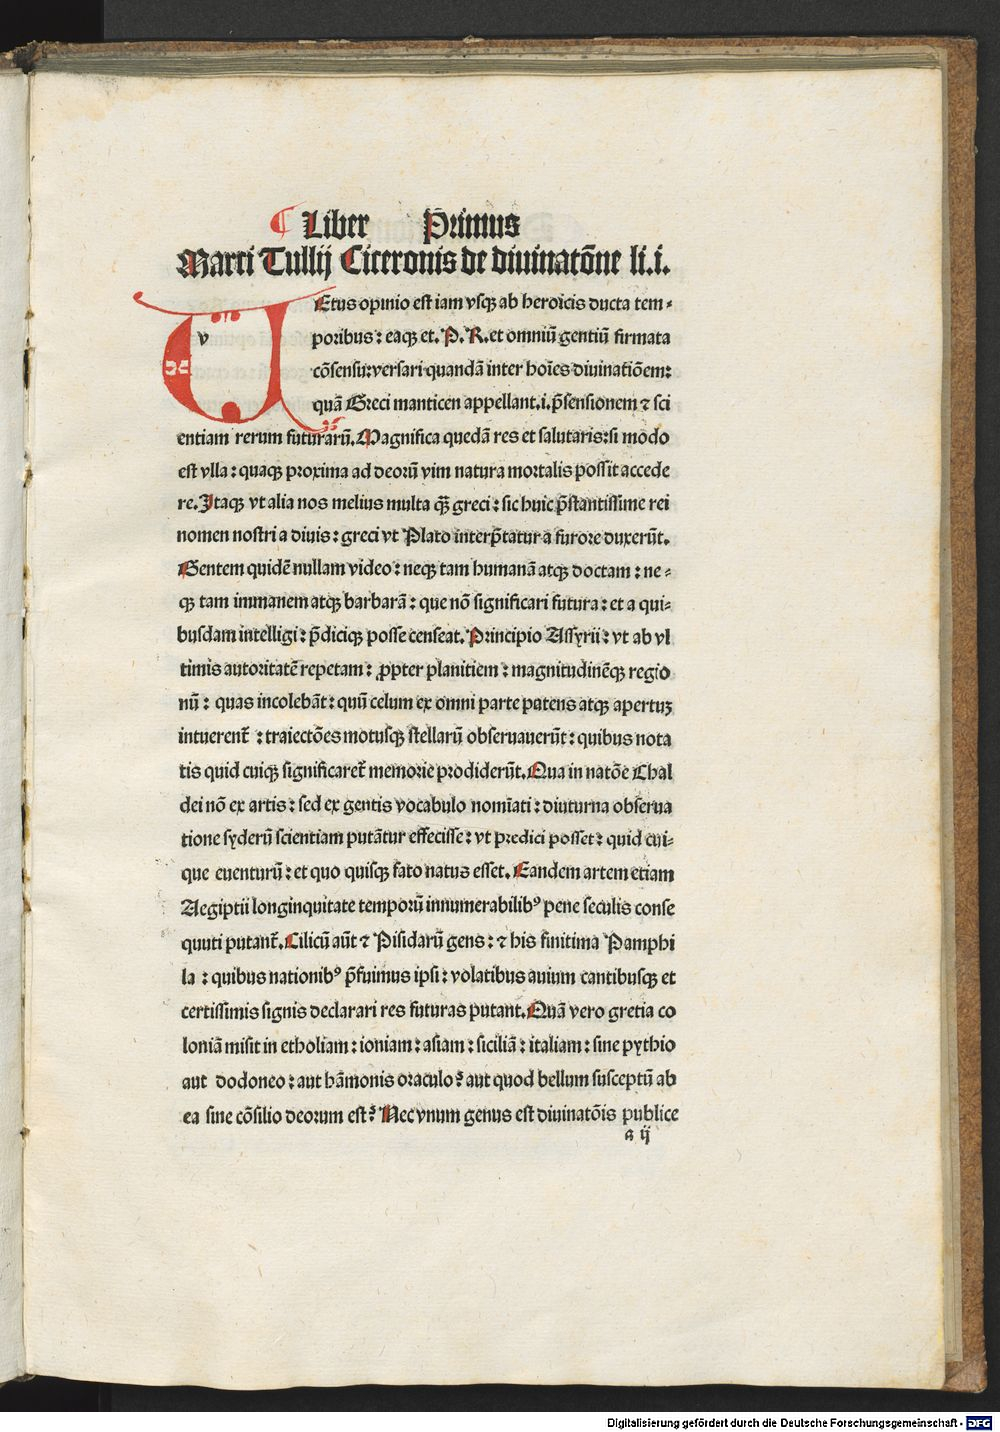 ¶ Liber Primus
Marci Tullij Ciceronis de diuinatõne li.i.
VEtus opinio est iam vsqꝫ ab heroicis ducta tem⸗
v poribus : eaqꝫ et. P. R. et omniũ gentiũ firmata
cõsensu: versari quandã inter hoĩes diuinatiõem:
quã Greci manticen appellant.i. p̃sensionem ⁊ sci
entiam rerum futurarũ. Magnifica quedã res et salutaris: si modo
est vlla : quaqꝫ proxima ad deorũ vim natura mortalis possit accede
re. Itaqꝫ vt alia nos melius multa qꝫ̃ greci : sic huic p̃stantissime rei
nomen nostri a diuis : greci vt Plato interp̃tatur a furore duxerũt.
Gentem quidẽ nullam video : neqꝫ tam humanã atqꝫ doctam : ne⸗
qꝫ tam inmanem atqꝫ barbarã : que nõ significari futura : et a qui⸗
busdam intelligi : p̃diciqꝫ posse censeat. Principio Assyrii : vt ab vl
timis autoritatẽ repetam : ꝓpter planitiem : magnitudinẽqꝫ regio
nũ : quas incolebãt : quũ celum ex omni parte patens atqꝫ apertuꝫ
intuerent̃ : traiectões motusqꝫ stellarũ obseruauerũt : quibus nota
tis quid cuiqꝫ significaret̃ memorie prodiderũt. Qua in natõe Chal
dei nõ ex artis : sed ex gentis vocabulo nomĩati : diuturna obserua
tione syderũ scientiam putãtur effecisse : vt predici posset : quid cui⸗
que euenturũ : et quo quisqꝫ fato natus esset. Eandem artem etiam
Aegiptii longinquitate temporũ innumerabilibꝰ pene seculis conse
quuti putant̃. Cilicũ aũt ⁊ Pisidarũ gens : ⁊ his finitima Pamphi
la : quibus nationibꝰ p̃fuimus ipsi : volatibus auium cantibusqꝫ et
certissimis signis declarari res futuras putant. Quã vero gretia co
loniã misit in etholiam : ioniam : asiam : siciliã : italiam : sine pythio
aut dodoneo : aut hãmonis oraculo? aut quod bellum susceptũ ab
ea sine cõsilio deorum est? Nec vnum genus est diuinatõis publice
a ij
Digitalisierung gefördert durch die Deutsche Forschungsgemeinschaft - DFG